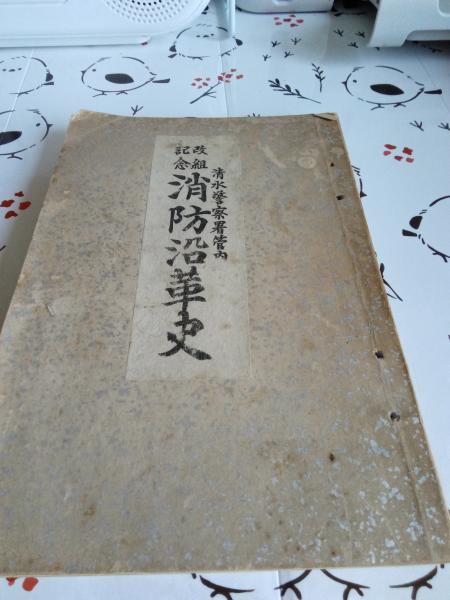 清水警察署管内
改組
記念
消防沿革史